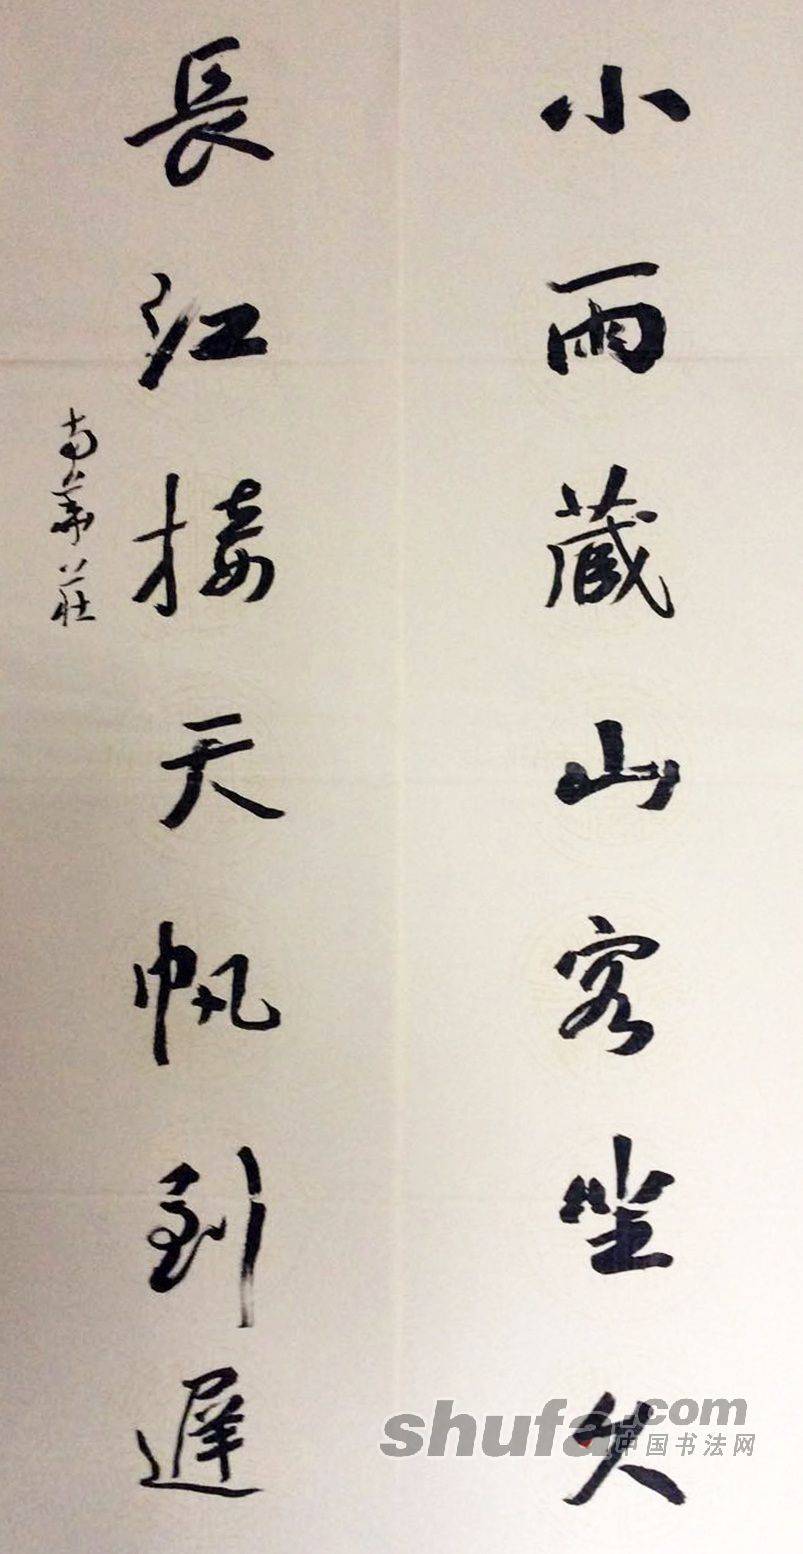 小雨藏山客坐久
長江接天帆到遲
南華莊
shufa.com
中国书法网